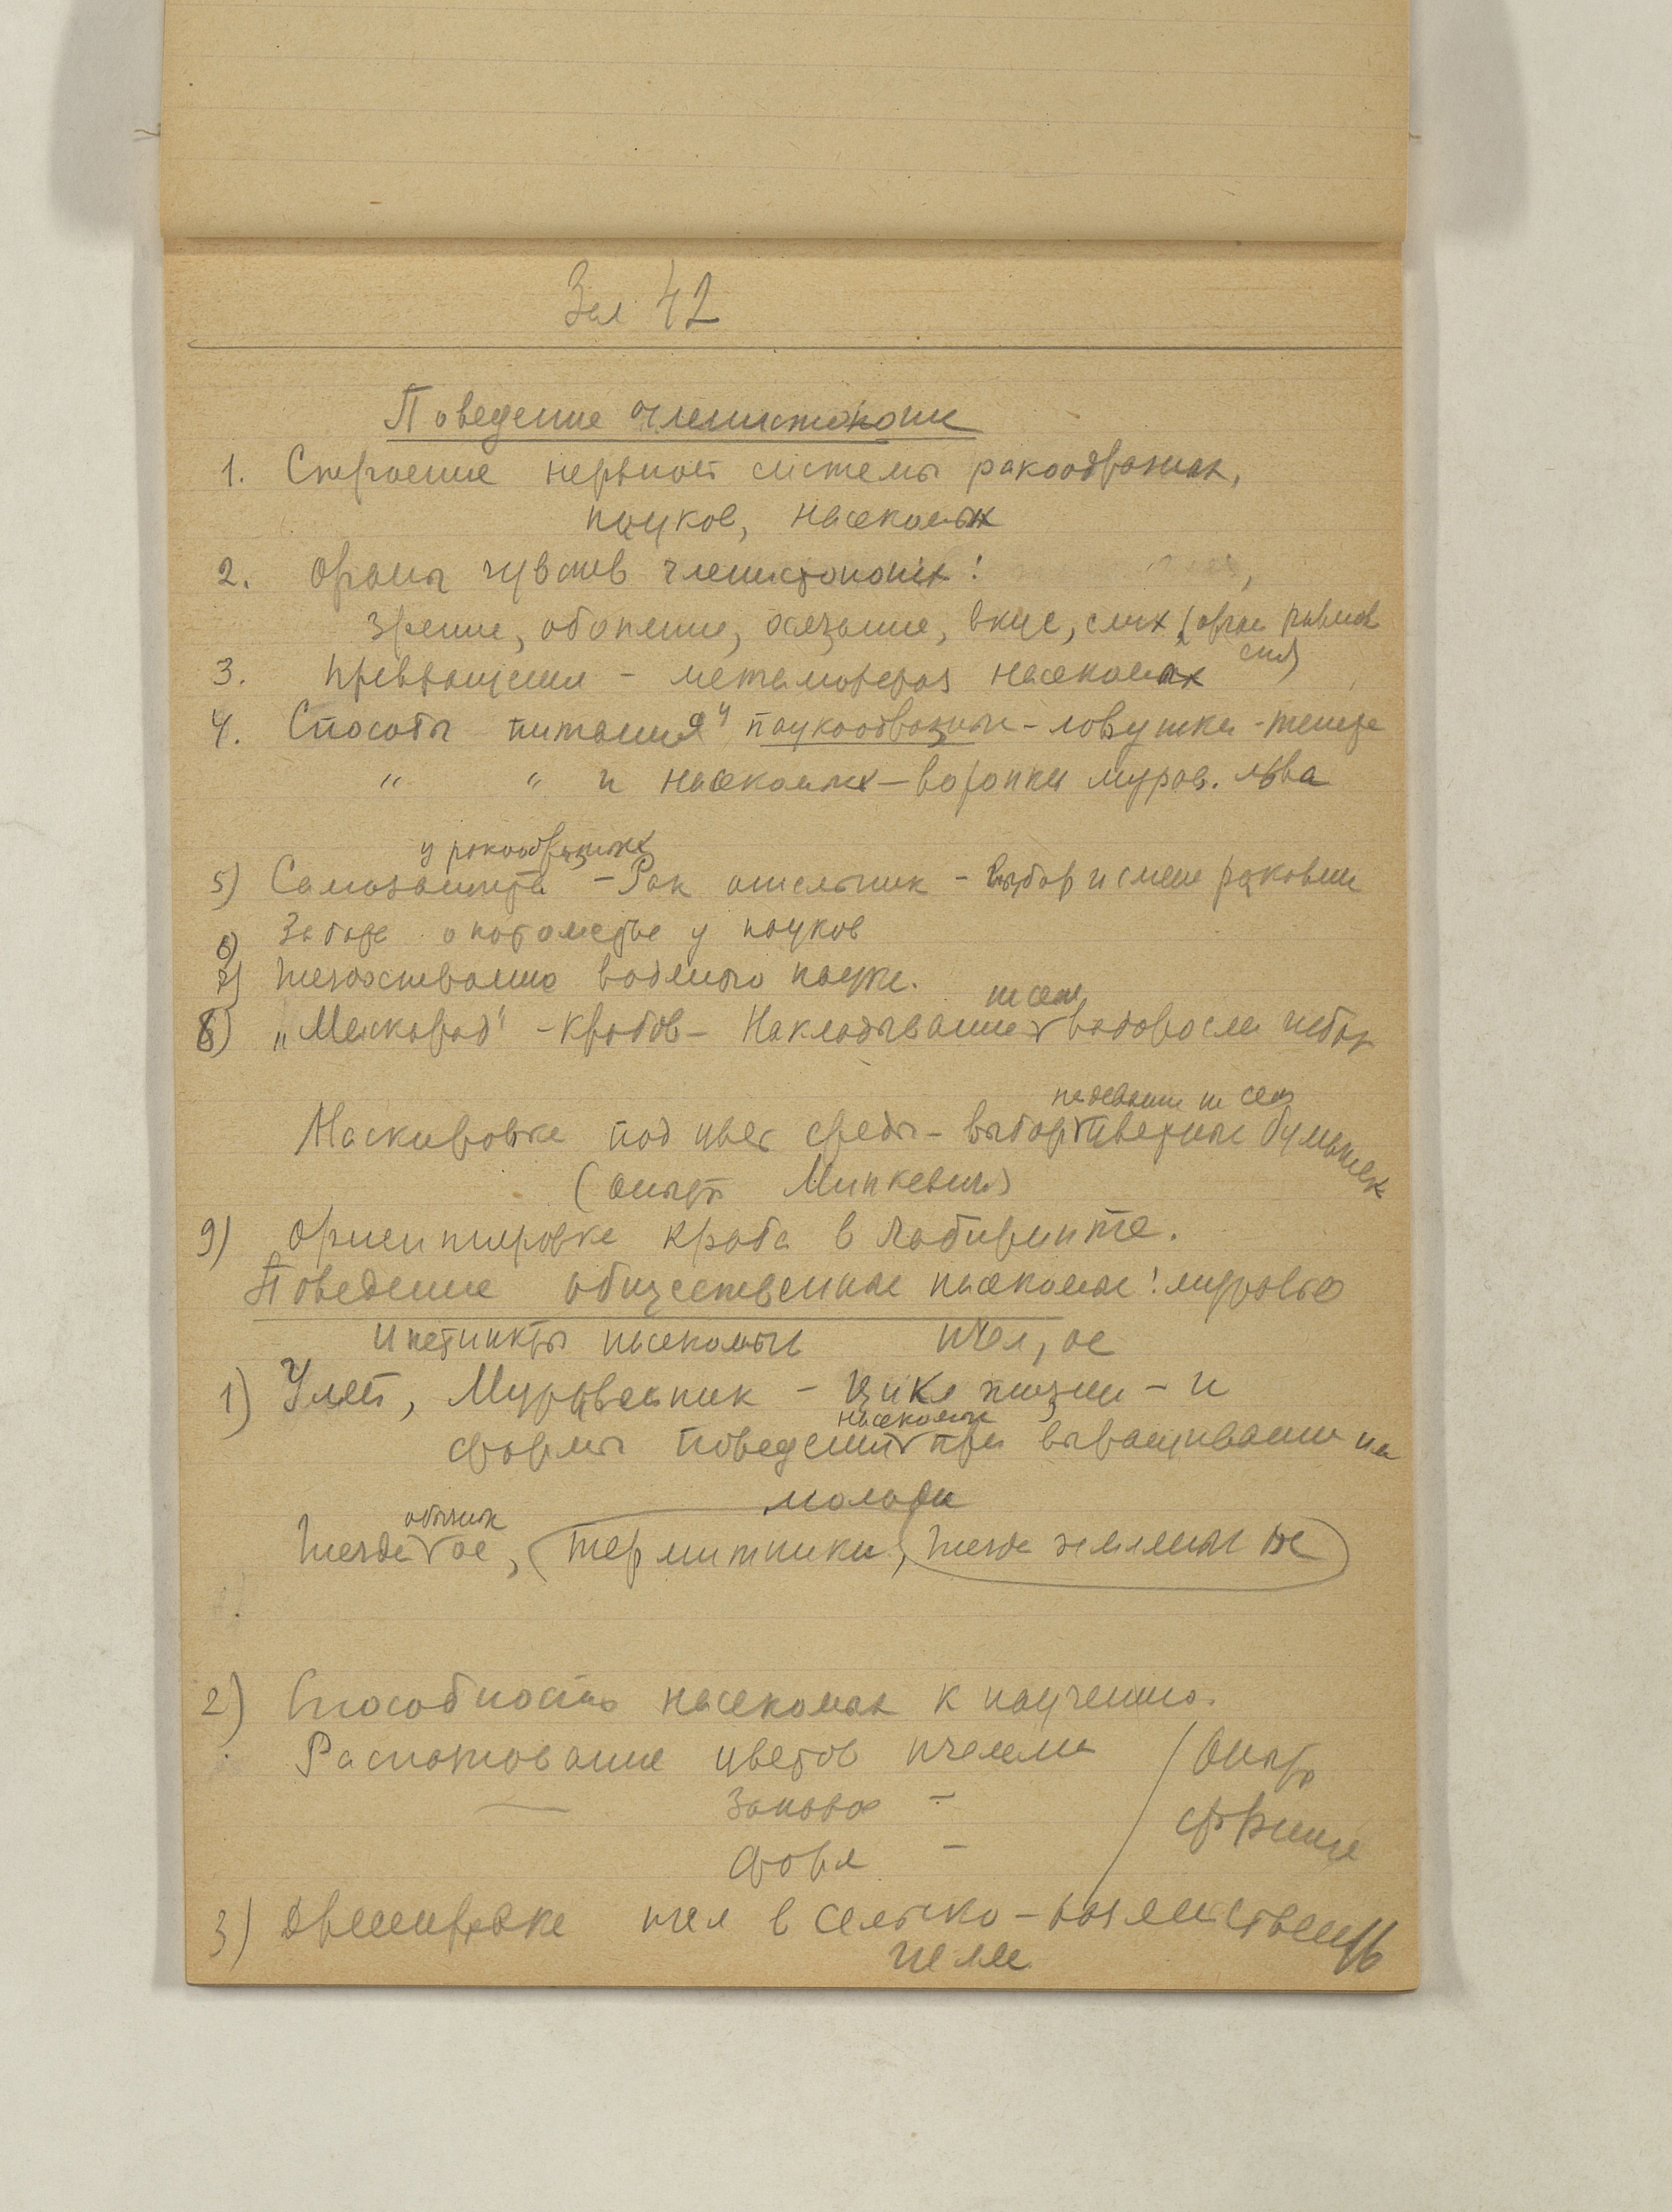 Зал 42
Поведение членистоногих
1. Строение нервной системы ракообразных,
пауков, насекомых
2. Органы чувств членистоногих:
зрение, обоняние, осязание, вкус, слух, (орган равнове
сия)
3. Превращения – метаморфоз насекомых
4. Способы питания у паукообразных – ловушки – тенета
" " и насекомых – воронки мурав. льва
у ракообразных
5) Самозащита – Рак отшельник – Выбор и смена раковин
6) Забота о потомстве у пауков
7) Гнездостроение водяного паука.
8) „Маскарад" – крабов – Накладывание на себя водоросли и губок
надевание на себя
Маскировка под цвет среды – выбор цветных бумажек
(опыты Минкевича)
9) Ориентировка краба в лабиринте.
Поведение общественных насекомых: муравьев
Инстинкты насекомых пчел, ос
1) Улей, Муравейник – цикл жизни – и
насекомых
формы поведения при выращивании их
молоди
обычных
Гнезда ос, (термитники, гнезда земляных ос)
2) Способность насекомых к научению.
Распознавание цветов пчелами / Опыты
запаха – Фриша
форм –
3) Дрессировка пчел в сельско-хозяйственных
целях